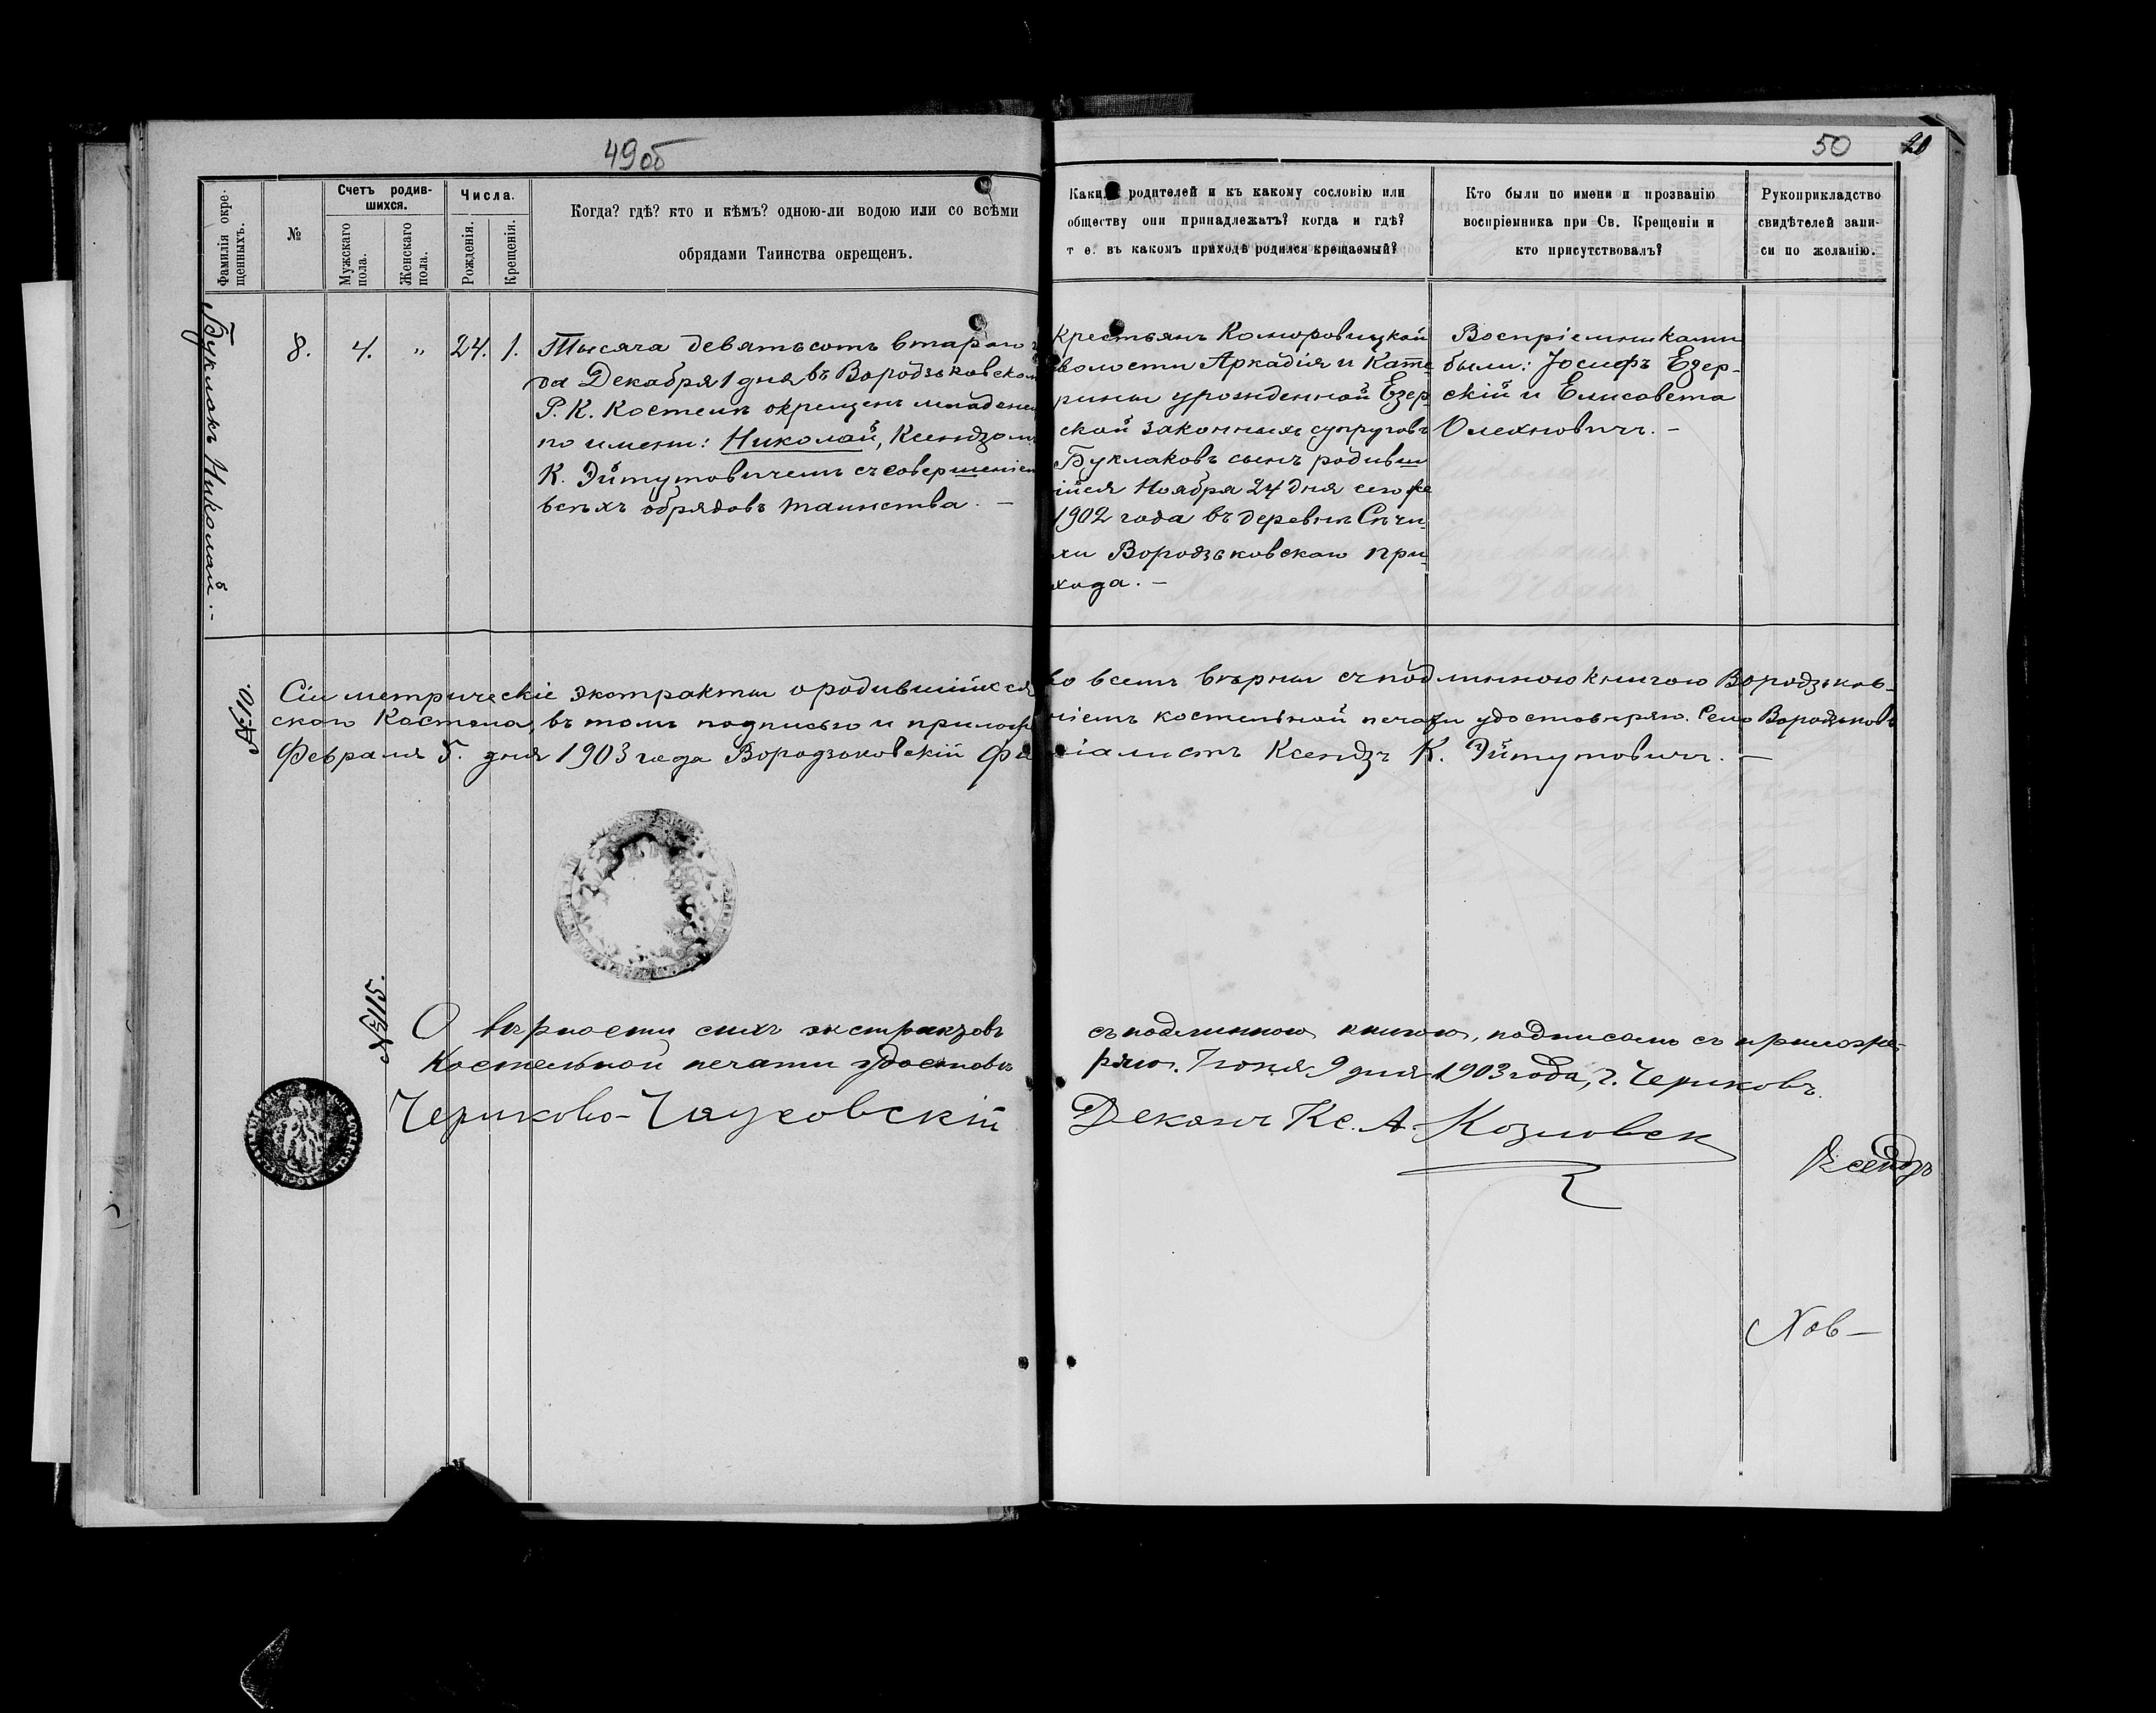 49об
50
20
Фамилія окре-
щенныхъ.
№
Счетъ родив-
шихся.
Мужскаго
пола.
Женскаго
пола.
Числа.
Рожденія.
Крещенія.
Когда? гдѣ? кто и кѣмъ? одною-ли водою или со всѣми
обрядами Таинства окрещенъ.
родителей и къ какому сословію или
обществу они принадлежатъ? когда и гдѣ?
т е. въ какомъ приходѣ родился крещаемый?
Кто были по имени и прозванію
воспріемника при Св. Крещеніи и
кто присутствовалъ?
Рукоприкладство
свидѣтелей запи-
си по желанію.
Буклакъ Николай.-
8.
4.
"
24.
1.
Тысяча девятьсотъ втораго
да Декабря 1 дня въ Вородзьковском
Р. К. Костелѣ окрещенъ младенец
по имени: Николай, Ксендзомъ
К. Эйтутовичемъ съ совершеніем
всѣхъ обрядовъ таинства. —
Крестьянъ Коморовицкой
волости Аркадія и Кате
рины урожденной Езер-
ской законныхъ супруговъ
Буклаковъ сынъ родивш
ійся Ноября 24 дня сего же
1902 года въ деревнѣ Сѣчи-
хи Вородзьковскаго при-
хода. —
Воспріемниками
были: Іосифъ Езер-
скій и Елисавета
Олехновичъ. —
№10.
Сіи метрическіе экстракты о родившихся во всемъ вѣрны съ подлинною книгою Вородзьков-
скаго Костела, въ томъ подписью и приложе ніемъ костельной печати удостовѣряю. Село Вородзьковъ
Февраля 5. дня 1903 года Вородзьковскій Фи ліалистъ Ксендзъ К. Эйтутовичъ. —
№115.
О вѣрности сихъ экстрактовъ съ подлинною книгою, подписомъ съ приложе-
Костельной печати удостовѣ ряю. Іюня 9 дня 1903 года, г. Чериковъ.
Чериково-Чаусовскій Деканъ Кс. А. Козловск
Ксендзъ